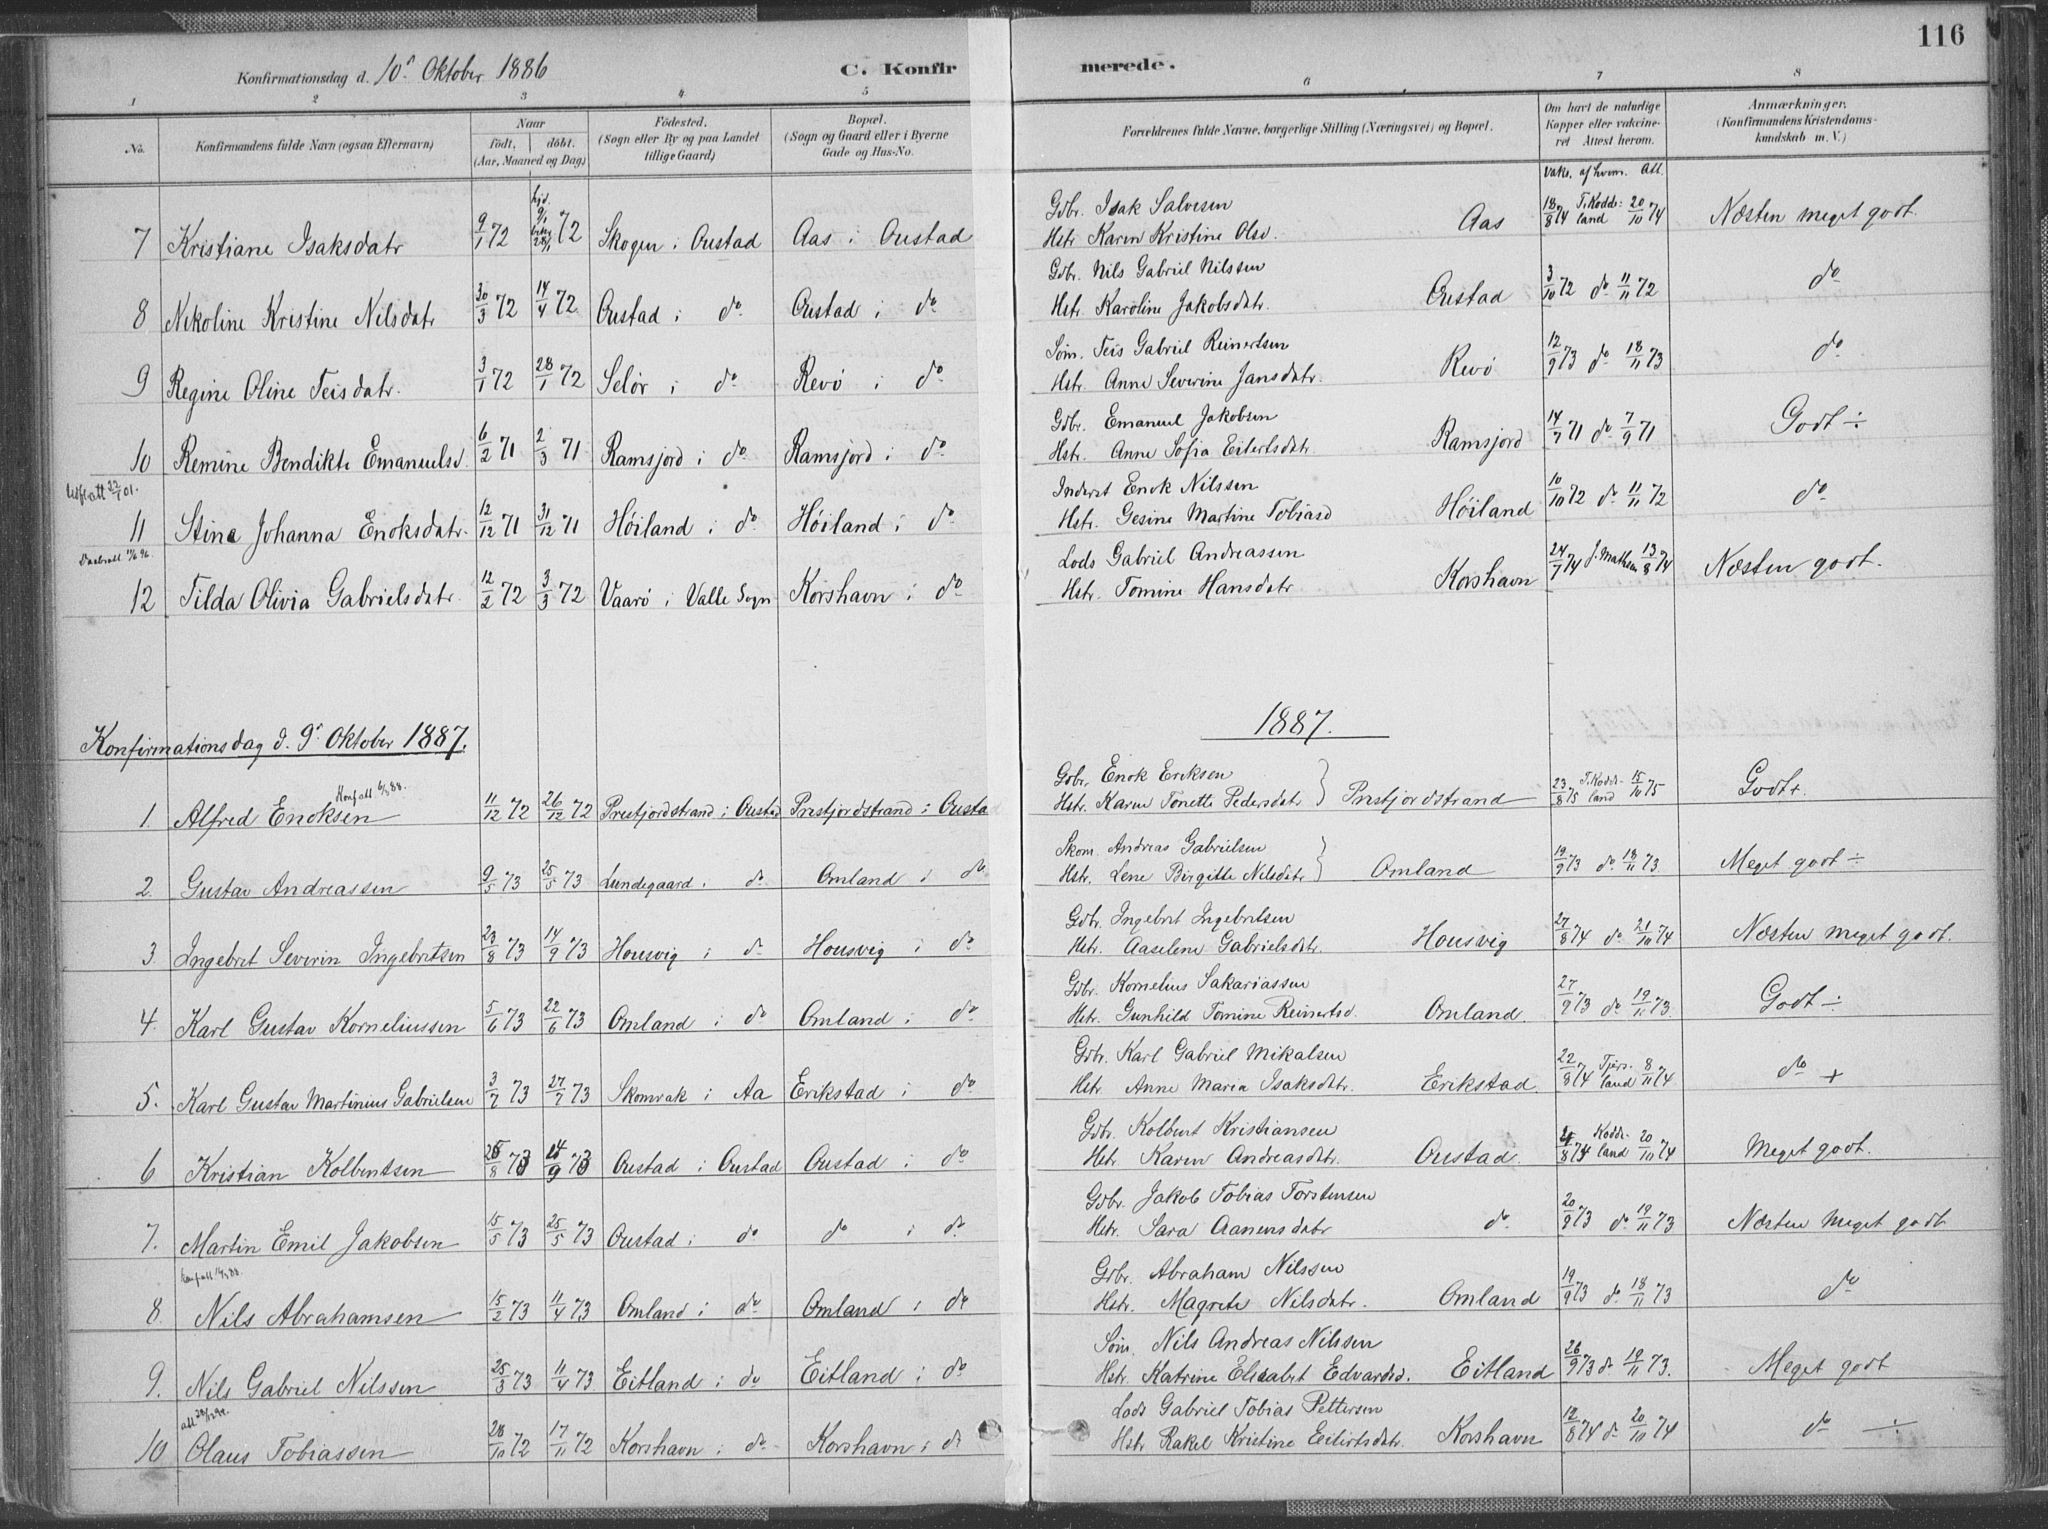 116
Konfirmationsdag d. 10de Oktober 1886 C. Konfirmerede.
1 2 3 4 5 6 7 8
No. Konfirmandens fulde Navn (ogsaa Efternavn) Naar födt, döbt. (Aar, Maaned og Dag) Födested. (Sogn eller By og paa Landet tillige Gaard) Bopæl. (Sogn og Gaard eller i Byerne Gade og Hus-No. Forældrenes fulde Navne, borgerlige Stilling (Næringsvei) og Bopæl. Om havt de naturlige Kopper eller vakcineret Attest herom. Anmærkninger. (Konfirmandens Kristendomskundskab m. V.)
Vaks. af hvem. Att.
7 Kristiane Isaksdatr 9/1 72 hjd. 9/1 72 28/1 Skogen i Oustad Aas i Oustad Gdbr. Isak Salvesen Hstr. Karen Kristine Olsd. Aas 18/8 74 T. Koddland 20/10 74 Næsten meget godt.
8 Nikoline Kristine Nilsdatr 30/3 72 14/4 72 Oustad i do Oustad i do Gdbr. Nils Gabriel Nilssen Hstr. Karoline Jakobsdatr. Oustad 3/10 72 do 11/11 72 do
9 Regine Oline Teisdatr. 3/1 72 28/1 72 Selör i do Revö i do Söm. Teis Gabriel Reinertsen Hstr. Anne Severine Jansdatr. Revö 12/9 73 do 18/11 73 do
10 Remine Bendikte Emanuelsd. 6/2 71 2/3 71 Ramsjord i do Ramsjord i do Gdbr. Emanuel Jakobsen Hstr. Anne Sofia Eilertsdatr. Ramsjord 14/7 71 do 7/9 71 Godt ÷
11 Stina Johanna Enoksdatr. 12/12 71 31/12 71 Höiland i do Höiland i do Inderst Enok Nilssen Hstr. Gesine Martine Tobiasd Höiland 10/10 72 do 11/11 72 do
12 Tilda Olivia Gabrielsdatr. 12/2 72 3/3 72 Vaarö i Valle Sogn Korshavn i do Lods Gabriel Andreassen Hstr. Tomine Hansdatr Korshavn 24/7 74 J. Mathesen 13/8 74 Næsten godt.
Konfirmationsdag d. 9de Oktober 1887. 1887.
1. Alfred Enoksen 11/12 72 26/12 72 Prestjordstrand i Oustad Prestjordstrand i Oustad Gdbr. Enok Eriksen Hstr. Karen Tonette Pedersdatr Prestjordstrand 23/8 75 T. Koddland 15/10 75 Godt.
2. Gustav Andreassen 9/5 73 25/5 73 Lundegaard i do Omland i do Skom. Andreas Gabrielsen Hstr. Lene Birgitte Nilsdatr Omland 19/9 73 do 18/11 73 Meget godt ÷
3. Ingebret Severin Ingebretsen 23/8 73 14/9 73 Housvig i do Housvig i do Gdbr. Ingebret Ingebretsen Hstr. Aaselene Gabrielsdatr. Housvig 27/8 74 do 21/10 74 Næsten meget godt.
4. Karl Gustav Korneliussen 5/6 73 22/6 73 Omland i do Omland i do Gdbr. Kornelius Sakariassen Hstr. Gunhild Tomine Reinertsd. Omland. 27/9 73 do 19/11 73. Godt ÷
5. Karl Gustav Martinius Gabrielsen 3/7 73 27/7 73 Skomrak i Aa Erikstad i do Gdbr. Karl Gabriel Mikalsen Hstr Anne Maria Isaksdatr. Erikstad. 22/8 74 Tjörsland 8/11 74 do +
6 Kristian Kolbentsen 8 73 9 73 Oustad i Oustad Oustad i do Gdbr. Kolbent Kristiansen Hstr. Karen Andreasdatr. Oustad 8 74 Koddland 20/10 74 Meget godt.
7. Martin Emil Jakobsen 15/5 73 25/5 73 Oustad i do do i do Gdbr. Jakob Tobias Torstensen Hstr. Sara Aanensdatr do 20/9 73 do 19/11 73 Næsten meget godt
8. Nils Abrahamsen 15/2 73 11/4 73 Omland i do Omland i do Gdbr. Abraham Nilssen Hstr. Magrete Nilsdatr. Omland 19/9 73 do 18/11 73 do
9. Nils Gabriel Nilssen 25/3 73 11/4 73 Eitland i do Eitland i do Söm. Nils Andreas Nilssen Hstr. Katrine Elisabet Edvardsd. Eitland 26/9 73 do 19/11 73. Meget godt
10 Olaus Tobiassen 28/10 72 17/11 72 Korshavn i do Korshavn i do Lods Gabriel Tobias Pettersen Hstr Rakel Kristine Eilertsdatr. Korshavn 12/8 74 do 20/10 74 do ÷